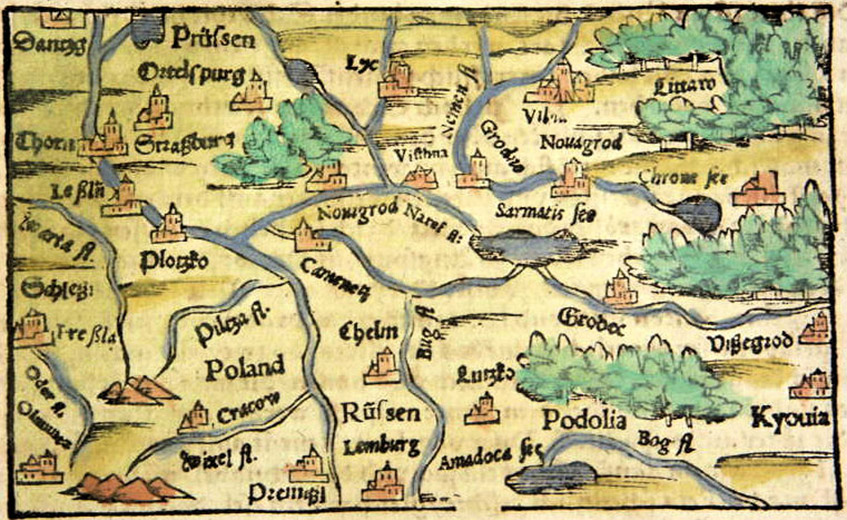 Dantzg
Prüssen
Ortelspurg
Lyc
Nemen fl
Littaw
Vilna
Thorn
Straßburg
Grodno
Nouagrod
Visthna
Leßlü
Chrone see
Nouigrod
Naref fl:
Sarmatis see
warta fl.
Plotzko
Camenetz
Schleß:
Pilcza fl.
Chelm
Bug fl
Grodec
Vißegrod
Preßla
Poland
Lutzko
Oder fl.
Cracow
Rüssen
Podolia
Kyouia
Olmuntz
Wixel fl.
Lemburg
Amadoca see
Bog fl
Premißl